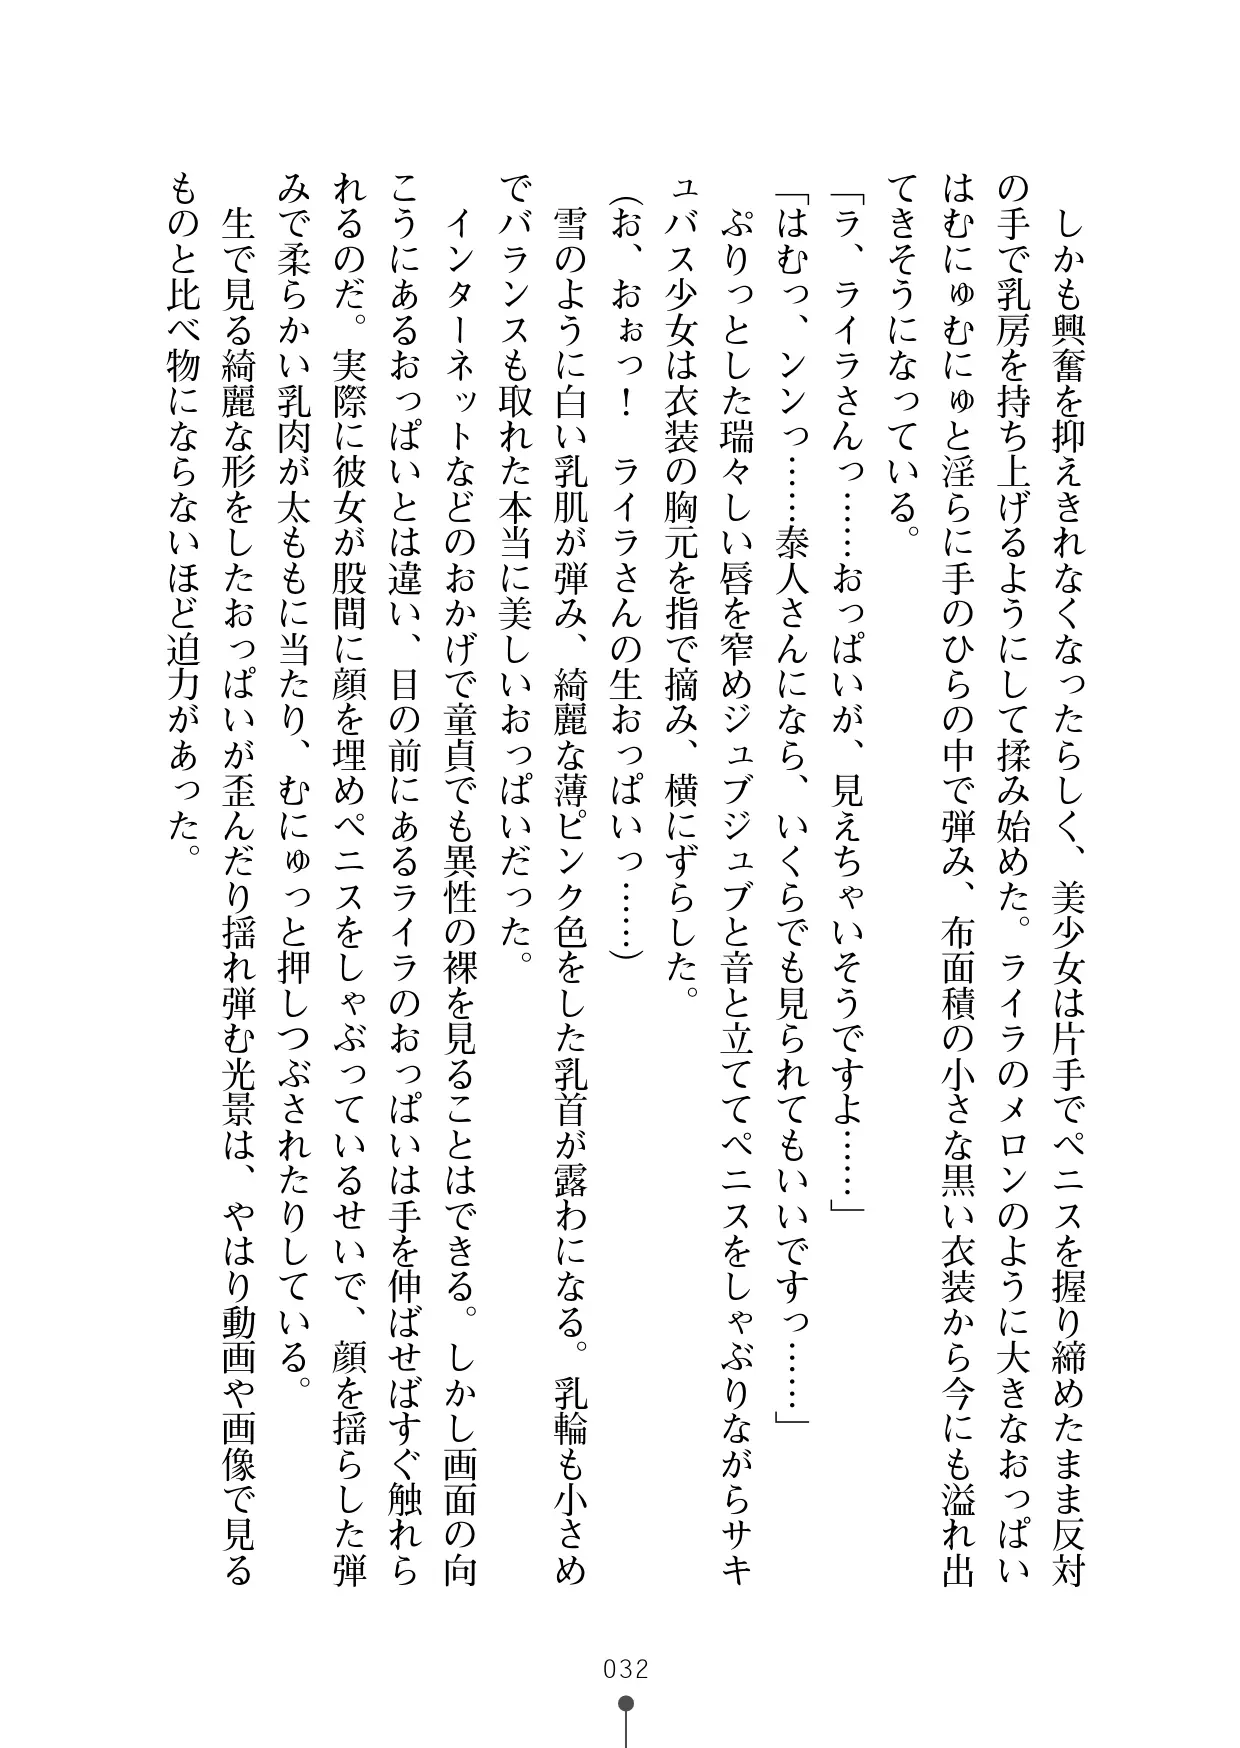 しかも興奮を抑えきれなくなったらしく、美少女は片手でペニスを握り締めたまま反対
の手で乳房を持ち上げるようにして揉み始めた。ライラのメロンのように大きなおっぱい
はむにゅむにゅと淫らに手のひらの中で弾み、布面積の小さな黒い衣装から今にも溢れ出
てきそうになっている。
「ラ、ライラさんっ……おっぱいが、見えちゃいそうですよ……」
「はむっ、ンンっ……泰人さんになら、いくらでも見られてもいいですっ……」
ぷりっとした瑞々しい唇を窄めジュブジュブと音と立ててペニスをしゃぶりながらサキ
ュバス少女は衣装の胸元を指で摘み、横にずらした。
(お、おぉっ！　ライラさんの生おっぱいっ……)
雪のように白い乳肌が弾み、綺麗な薄ピンク色をした乳首が露わになる。乳輪も小さめ
でバランスも取れた本当に美しいおっぱいだった。
インターネットなどのおかげで童貞でも異性の裸を見ることはできる。しかし画面の向
こうにあるおっぱいとは違い、目の前にあるライラのおっぱいは手を伸ばせばすぐ触れら
れるのだ。実際に彼女が股間に顔を埋めペニスをしゃぶっているせいで、顔を揺らした弾
みで柔らかい乳肉が太ももに当たり、むにゅっと押しつぶされたりしている。
生で見る綺麗な形をしたおっぱいが歪んだり揺れ弾む光景は、やはり動画や画像で見る
ものと比べ物にならないほど迫力があった。
032